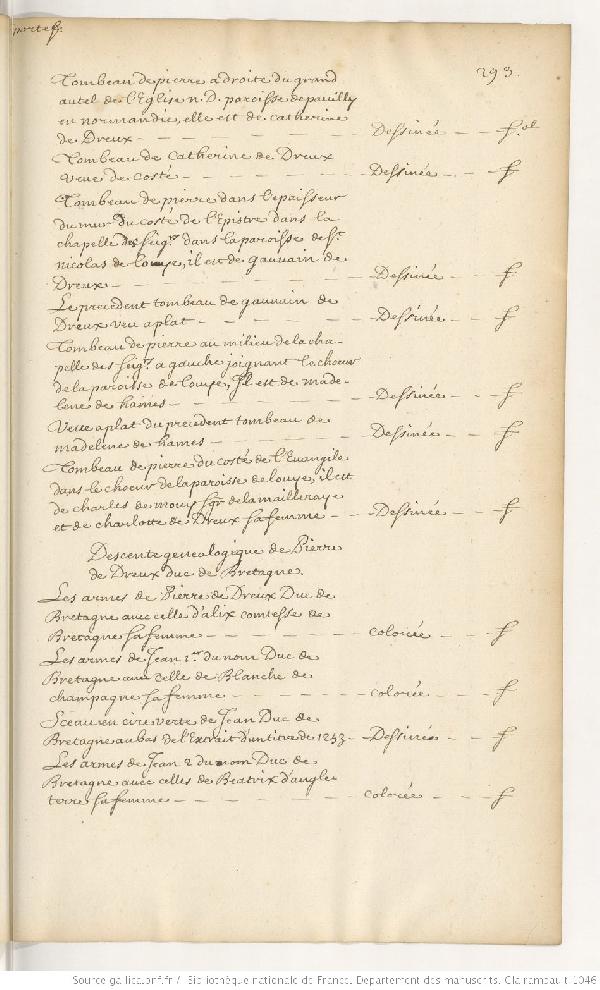 portef.
293.
Tombeau de pierre a droite du grand
autel de l'Eglise n. D. paroisse de pavilly
en normandie, elle est de catherine
de Dreux — Dessinée — f.ol
Tombeau de Catherine de Dreux
veue de costé — Dessinée — f
Tombeau de pierre dans l'epaisseur
du mur du costé de l'Epistre dans la
chapelle des seigrs dans la paroisse de st
nicolas de louye, il est de gauvain de
Dreux — Dessinée — f
Le precedent tombeau de gauvain de
Dreux veu a plat — Dessinée — f
Tombeau de pierre au milieu de la cha-
pelle des seigrs a gauche joignant le choeur
de la paroisse de louye, Il est de made-
lene de hames — Dessinée — f
Veue a plat du precedent tombeau de
madelene de hames — Dessinée — f
Tombeau de pierre du costé de l'Euangile
dans le choeur de la paroisse de louye, il est
de charles de mouy sgr de la mailleraye
et de charlotte de Dreux sa femme — Dessinée — f
Descente genealogique de Pierre
de Dreux duc de Bretagne.
Les armes de Pierre de Dreux Duc de
Bretagne avec celle d'alix comtesse de
Bretagne sa femme — coloriée — f
Les armes de Jean 1er du nom Duc de
Bretagne avec celle de Blanche de
champagne sa femme — coloriée — f
Sceau en cire verte de Jean Duc de
Bretagne au bas de l'Extrait d'un titre de 1253 — Dessinée — f
Les armes de Jean 2 du nom Duc de
Bretagne avec celles de Beatrix d'angle
terre sa femme — coloriée — f
Source gallica.bnf.fr / Bibliothèque nationale de France. Département des manuscrits. Clairambault 1046